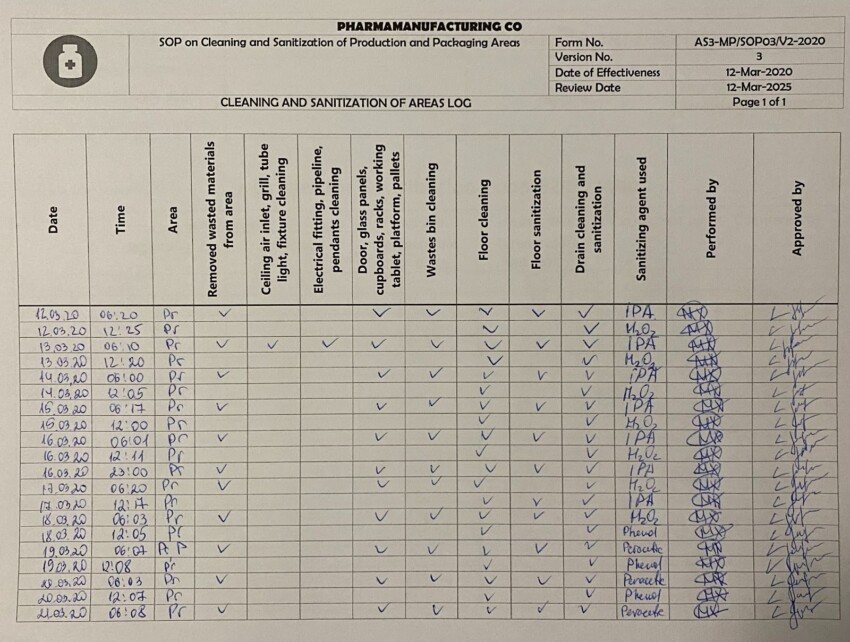 PHARMAMANUFACTURING CO
SOP on Cleaning and Sanitization of Production and Packaging Areas
Form No. AS3-MP/SOP03/V2-2020
Version No. 3
Date of Effectiveness 12-Mar-2020
Review Date 12-Mar-2025
CLEANING AND SANITIZATION OF AREAS LOG Page 1 of 1
Date Time Area Removed wasted materials from area Ceiling air inlet, grill, tube light, fixture cleaning Electrical fitting, pipeline, pendants cleaning Door, glass panels, cupboards, racks, working tablet, platform, pallets Wastes bin cleaning Floor cleaning Floor sanitization Drain cleaning and sanitization Sanitizing agent used Performed by Approved by
12.03.20 06:20 Pr ✓ ✓ ✓ ✓ ✓ ✓ IPA
12.03.20 12:25 Pr ✓ ✓ H₂O₂
13.03.20 06:10 Pr ✓ ✓ ✓ ✓ ✓ ✓ ✓ ✓ IPA
13.03.20 12:20 Pr ✓ ✓ H₂O₂
14.03.20 06:00 Pr ✓ ✓ ✓ ✓ ✓ ✓ IPA
14.03.20 12:05 Pr ✓ ✓ H₂O₂
15.03.20 06:17 Pr ✓ ✓ ✓ ✓ ✓ ✓ IPA
15.03.20 12:00 Pr ✓ ✓ H₂O₂
16.03.20 06:01 Pr ✓ ✓ ✓ ✓ ✓ ✓ IPA
16.03.20 12:11 Pr ✓ H₂O₂
16.03.20 23:00 Pr ✓ ✓ ✓ ✓ ✓ ✓ IPA
17.03.20 06:20 Pr ✓ ✓ ✓ ✓ ✓ H₂O₂
17.03.20 12:17 Pr ✓ ✓ ✓ IPA
18.03.20 06:03 Pr ✓ ✓ ✓ ✓ ✓ ✓ H₂O₂
18.03.20 12:05 Pr ✓ ✓ Phenol
19.03.20 06:07 ✓ ✓ ✓ ✓ ✓ ✓ Peracetic
19.03.20 12:08 Pr ✓ ✓ Phenol
20.03.20 06:03 Pr ✓ ✓ ✓ ✓ ✓ ✓ Peracetic
20.03.20 12:07 Pr ✓ ✓ Phenol
21.03.20 06:08 Pr ✓ ✓ ✓ ✓ ✓ ✓ Peracetic